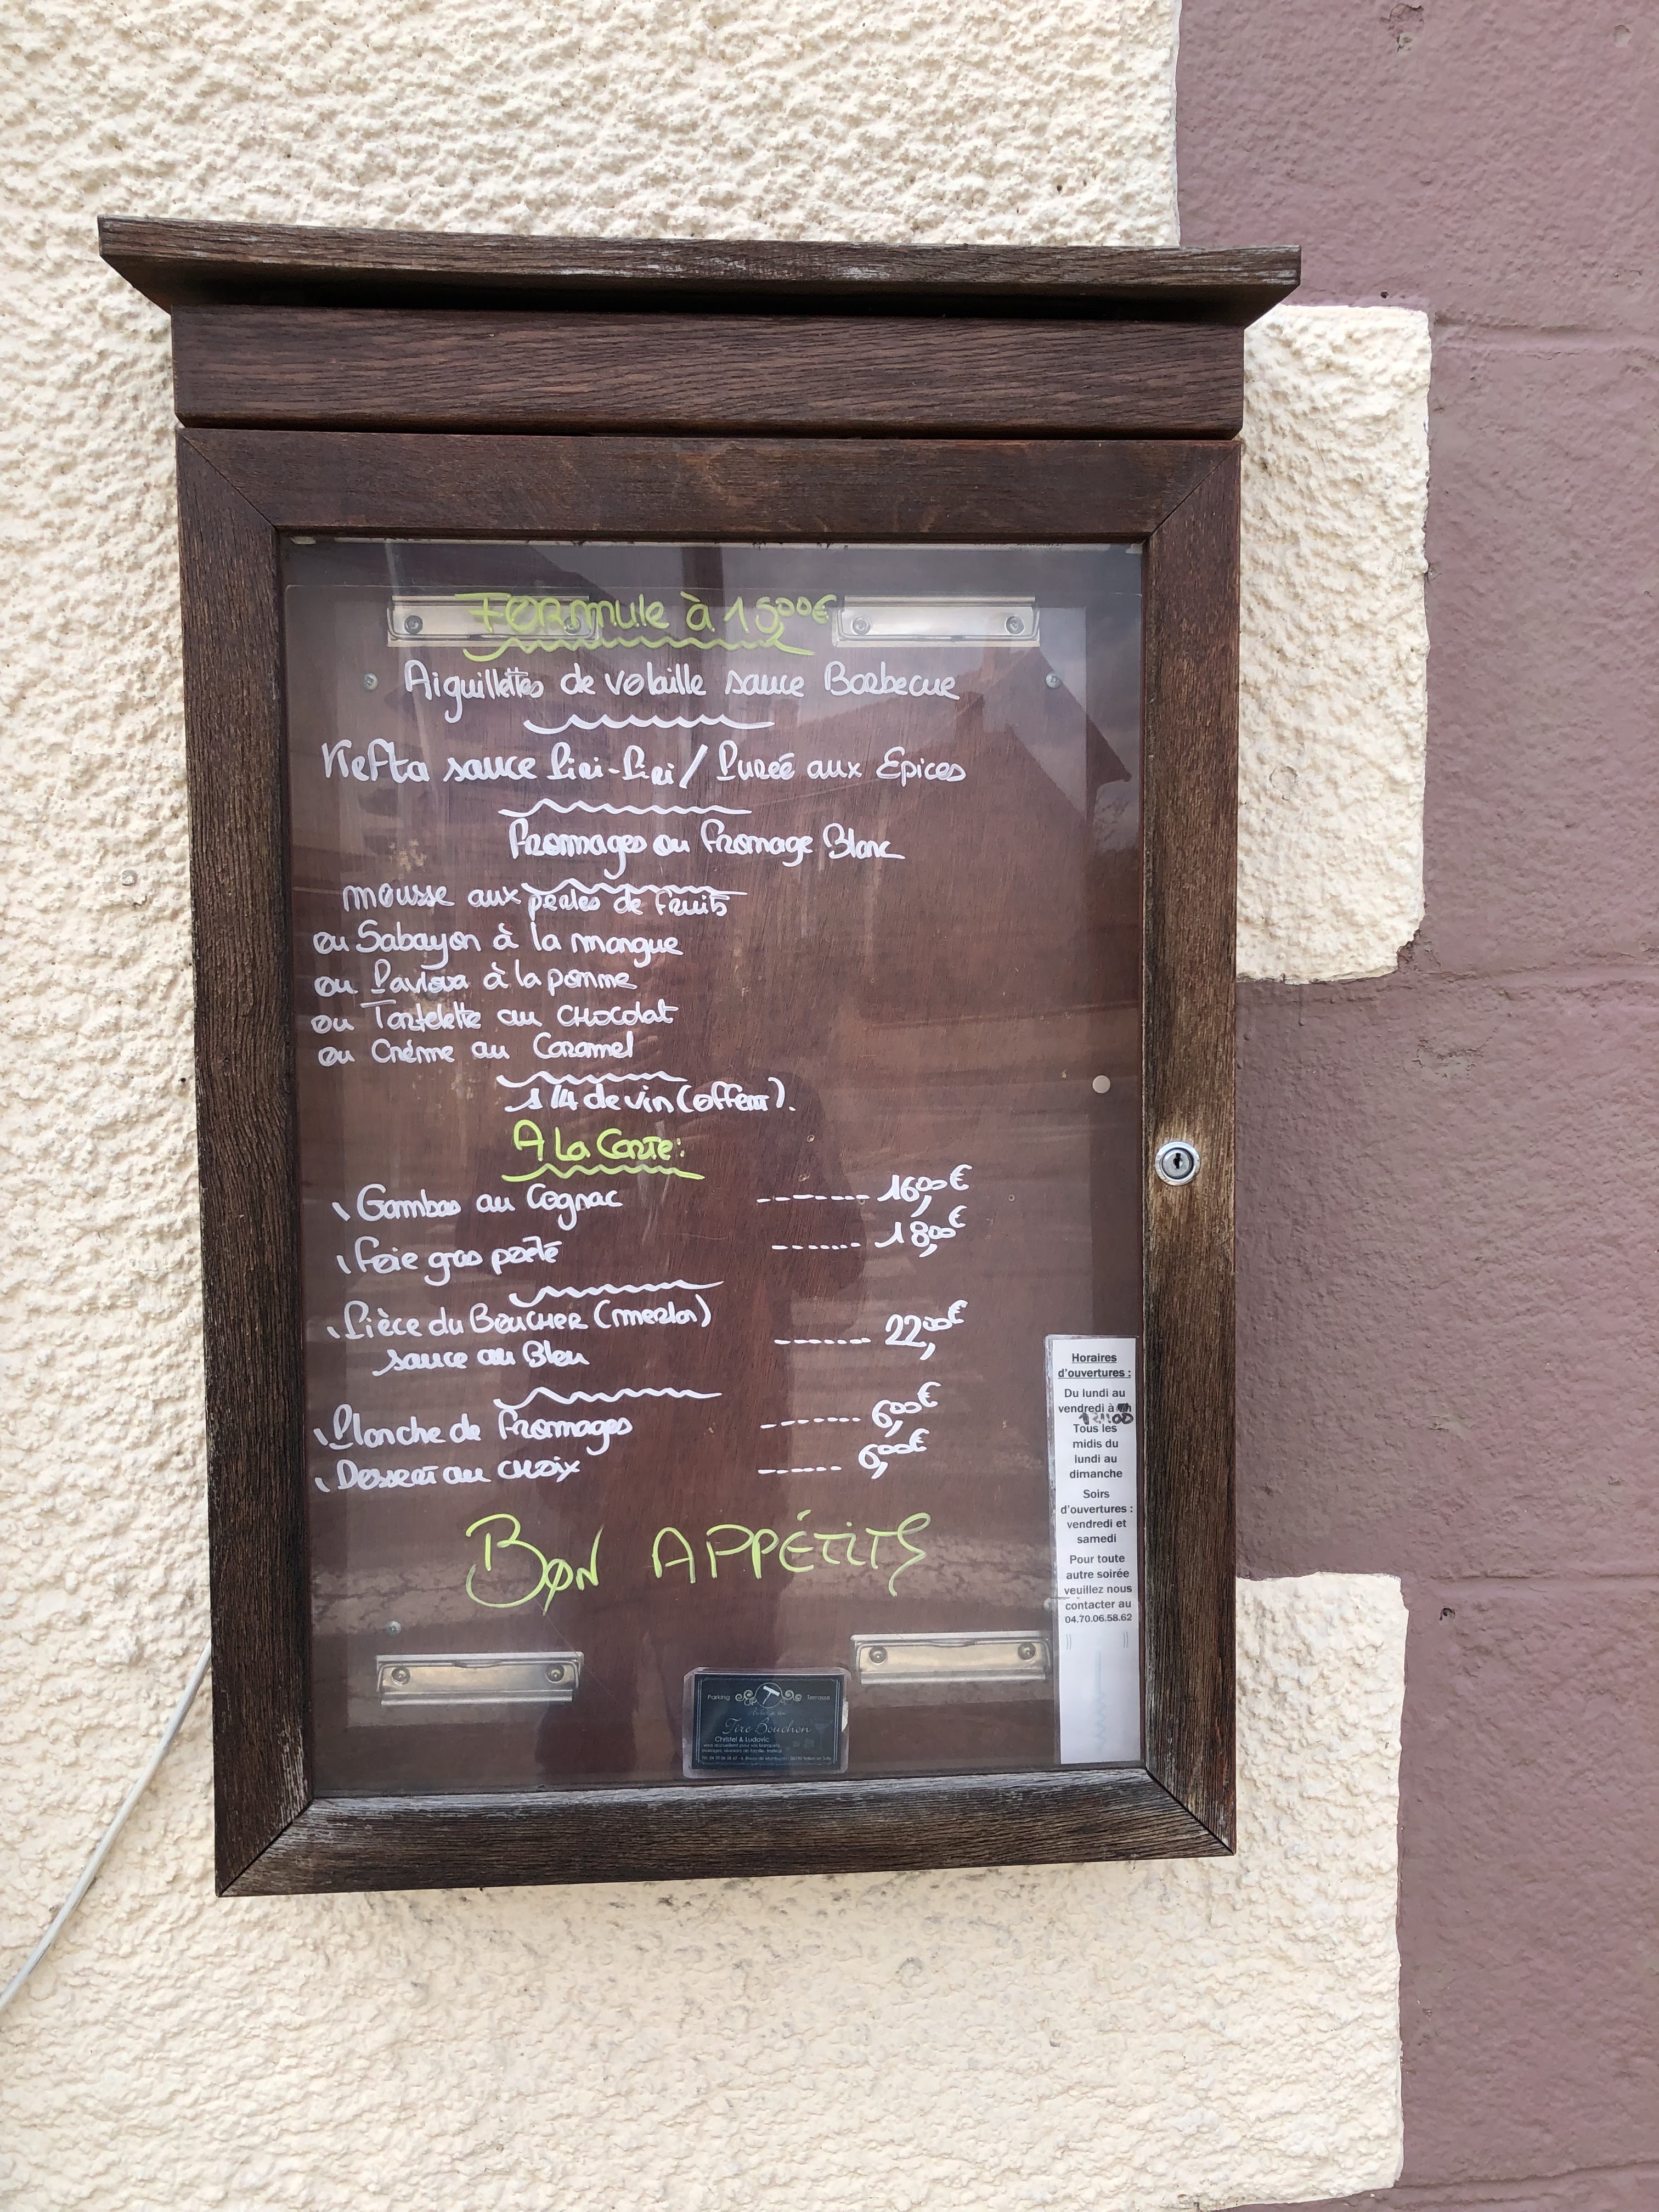 Formule à 15,00€
Aiguillettes de volaille sauce Barbecue
Kefta sauce Piri-Piri / Purée aux Epices
Fromages ou Fromage Blanc
mousse aux perles de fruits
ou Sabayon à la mangue
ou Pavlova à la pomme
ou Tartelette au chocolat
ou Crème au Caramel
1/4 de vin (offert).
A la Carte:
Gambas au Cognac -------- 16,00€
Foie gras poêlé ------- 18,00€
Pièce du Boucher (merlan) ------- 22,00€
sauce au Bleu
Planche de Fromages ------- 6,00€
Dessert au choix ------ 6,00€
BON APPÉTITS
Horaires
d'ouvertures :
Du lundi au
vendredi à
Tous les
midis du
lundi au
dimanche
Soirs
d'ouvertures :
vendredi et
samedi
Pour toute
autre soirée
veuillez nous
contacter au
04.70.06.58.62
Parking Terrasse
Tire Bouchon
Christel & Ludovic